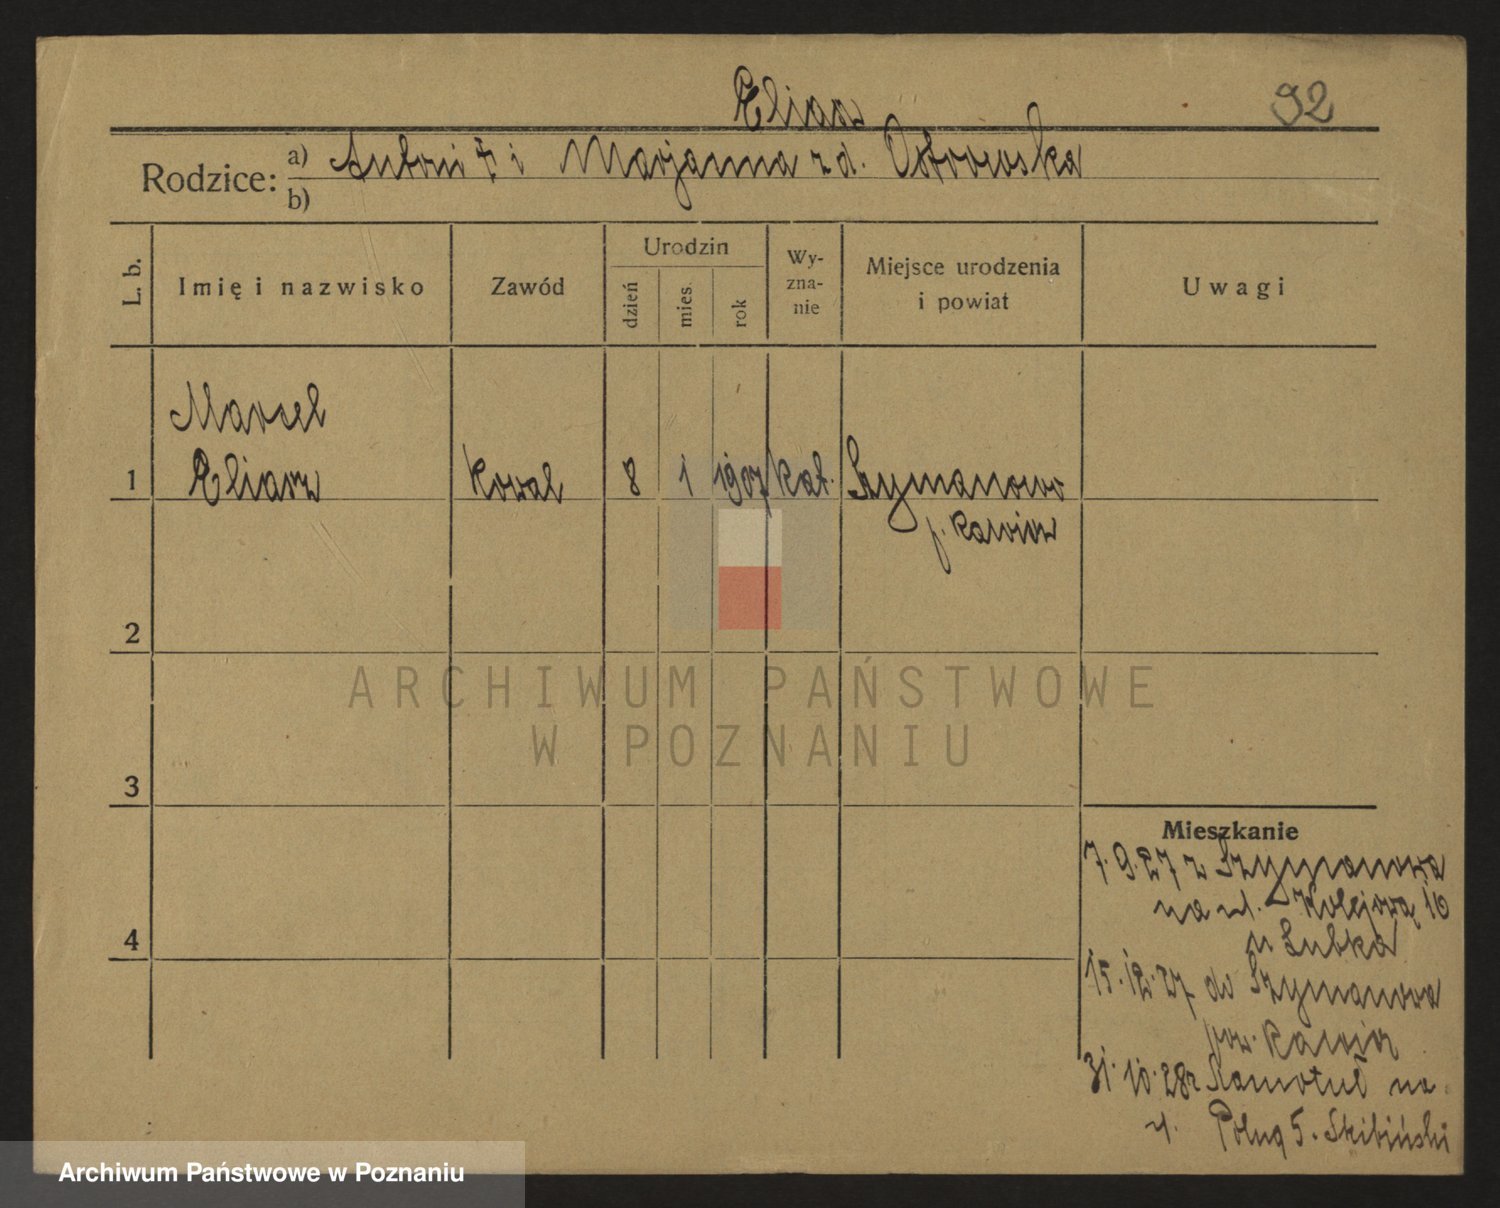 Eliasz
92
Rodzice: a) Antoni † i Marjanna z d. Ostrowska
b)
L. b.
Imię i nazwisko
Zawód
Urodzin
dzień
mies.
rok
Wy-
zna-
nie
Miejsce urodzenia
i powiat
Uwagi
Marcel
1 Eliasz kowal 8 1 1907 kat. Szymanowo
p. Rawicz
2
3
4
Mieszkanie
7.9.27 z Szymanowa
na ul. Kolejową 10
u Lubka
15.12.27 do Szymanowa
pow. Rawicz
31.10.28 z Szamotuł na
ul. 5. Skibiński
ARCHIWUM PAŃSTWOWE
W POZNANIU
Archiwum Państwowe w Poznaniu